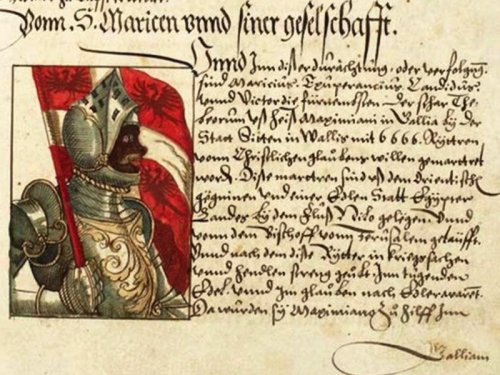 Vonn. S. Maricen vnnd siner geselschafft.
Vnnd Inn diser durächtung, oder verfolgung
sind Maricius, Exuperancius, Candidus,
vnnd Victor die fürnemsten der schar The-
beorum vß heiß Maximiani in Gallia by der
Statt Sitten in Wallis mit 6666. Ryttren
vom Christlichen glaubens willen gemartret
worden. Diste martren sind vß dem Orientischen
gegninen vnd einer Edlen Statt Egypter
Landes by dem Fluß Nilo gelegen, vnnd
vonn dem Bischoff vonn Jerusalem getaüfft.
Vnnd nach dem dise Rytter in kriegssachen
vnnd hendlen streng geübt Inn tugenden
Edel vnnd Im glauben noch
Da wurden sy Maximiano zu hilff Inn
Galliam